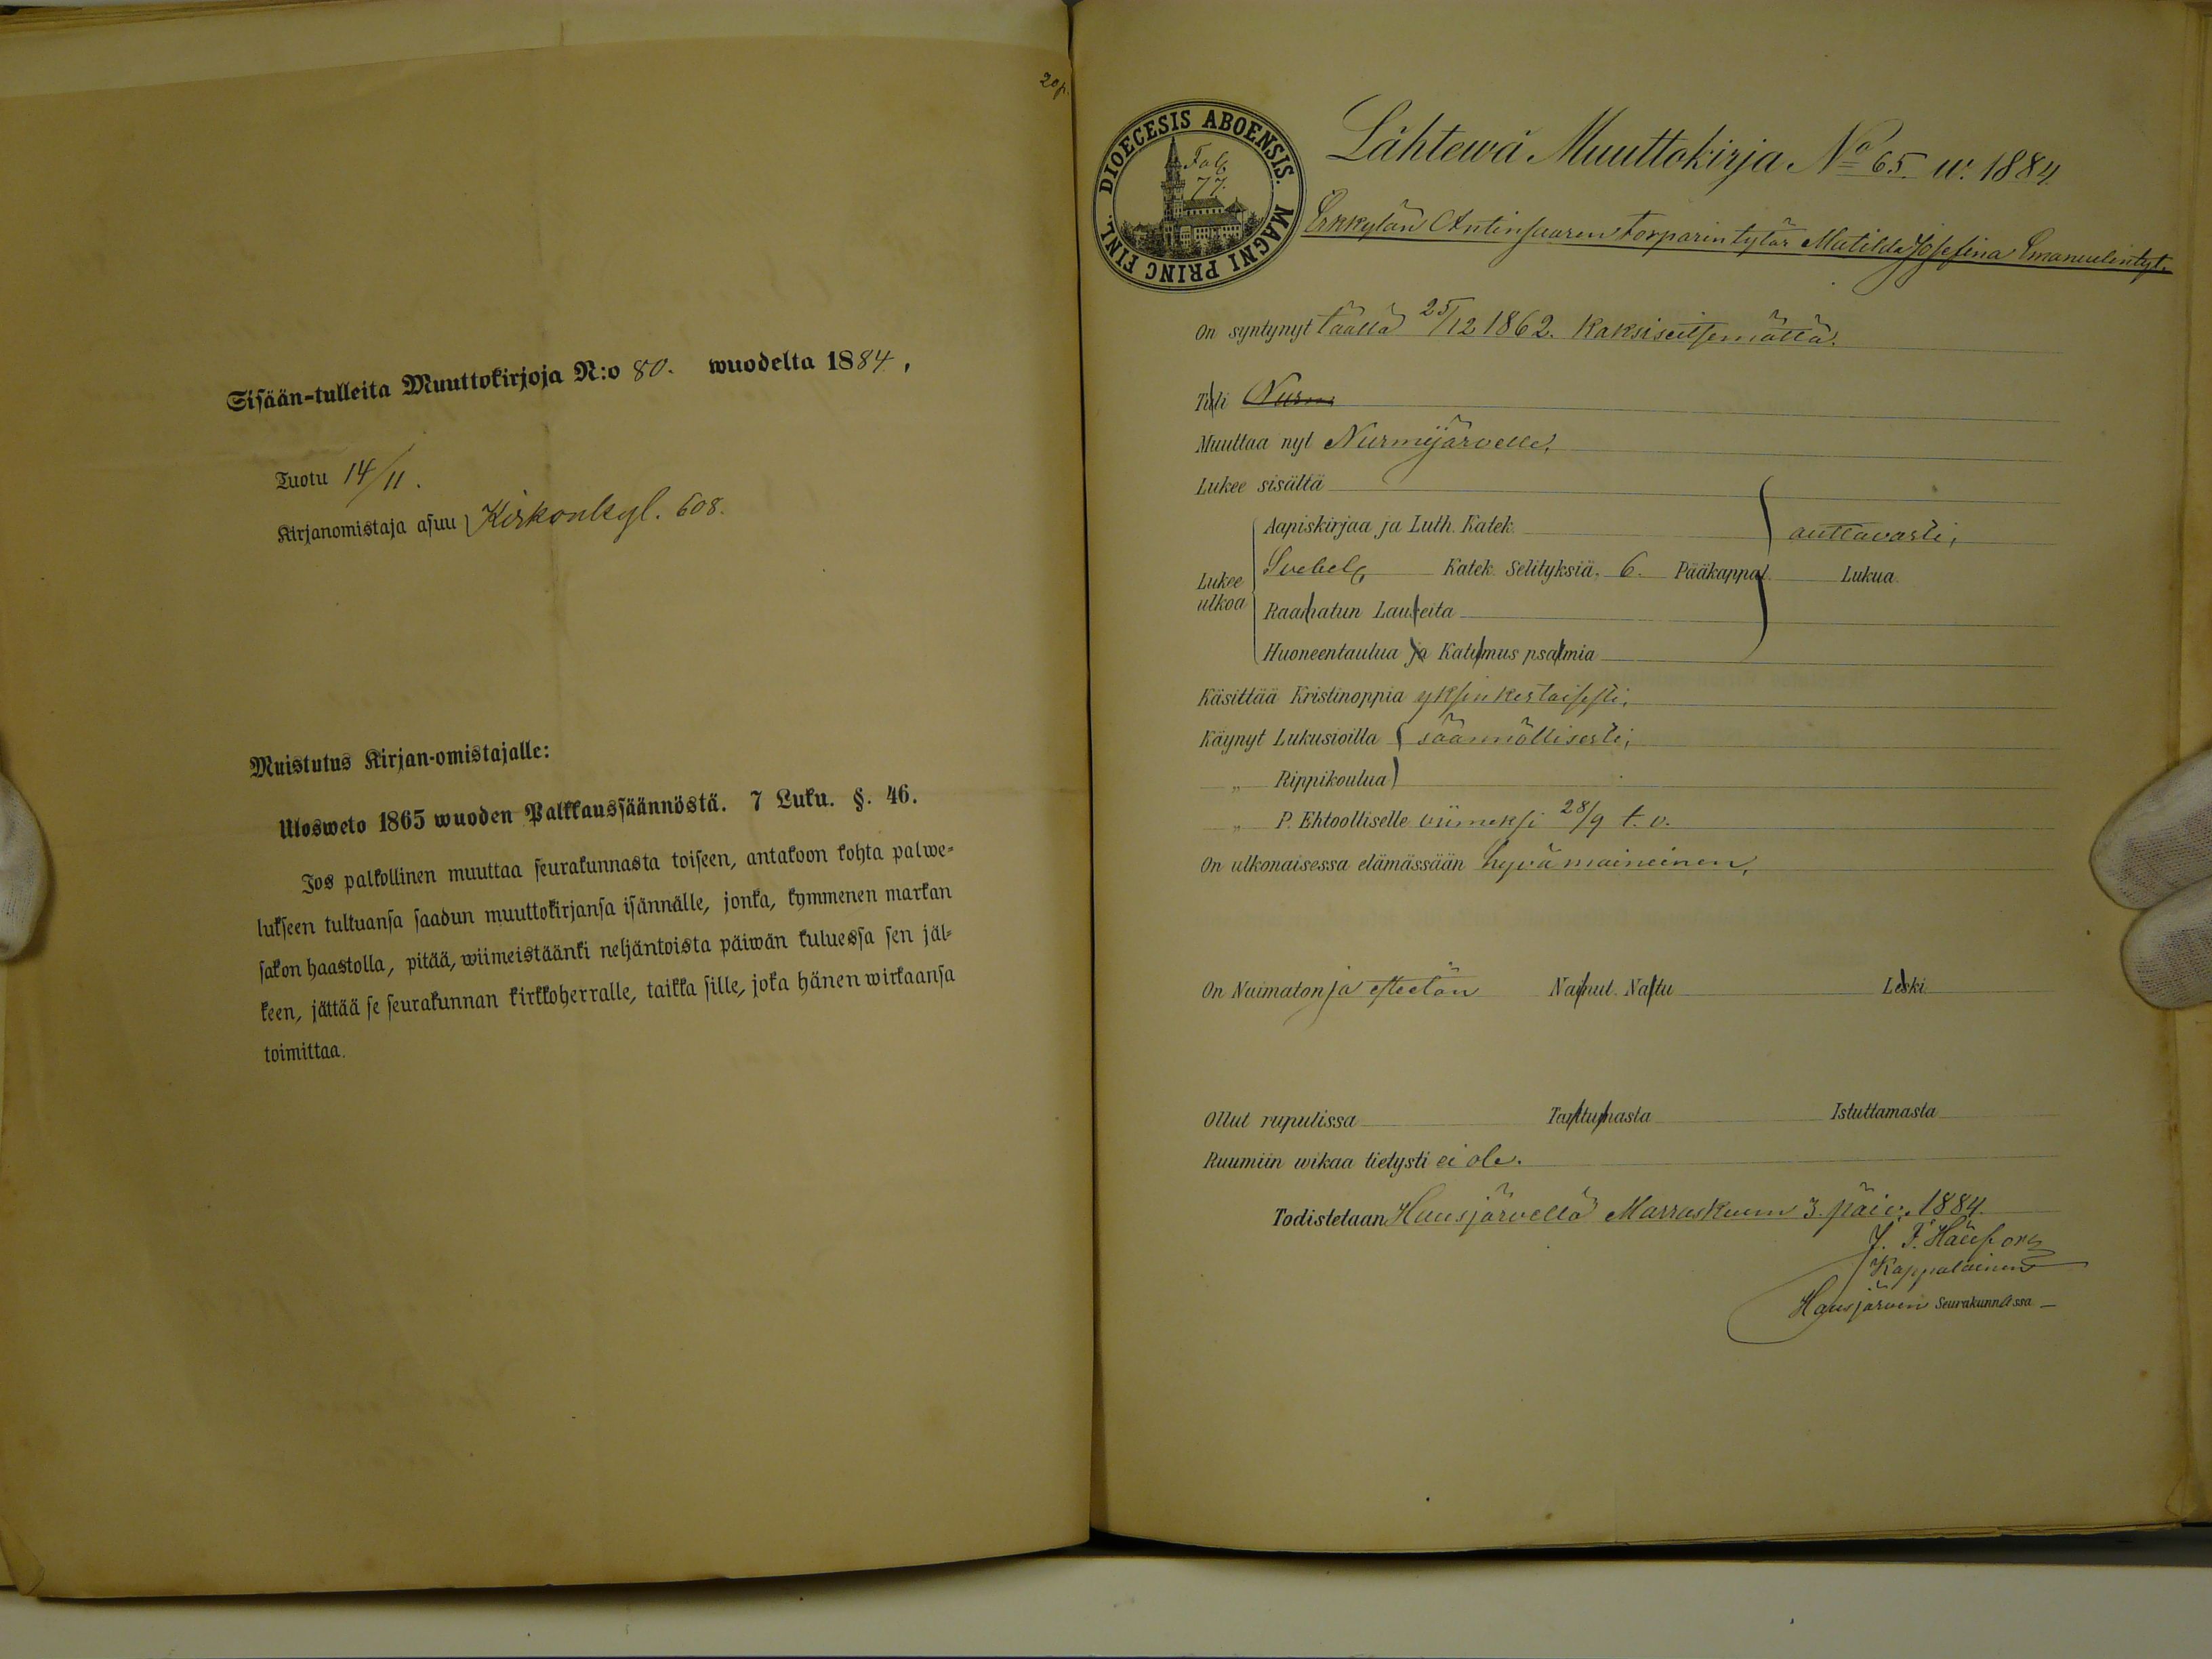 20 p.
Sisään-tulleita Muuttokirjoja N:o 80. wuodelta 1884,
Tuotu 14/11.
Kirjanomistaja asuu Kirkonkyl. 608.
Muistutus Kirjan-omistajalle:
Ulosweto 1865 wuoden Palkkaussäännöstä. 7 Luku. §. 46.
Jos palkollinen muuttaa seurakunnasta toiseen, antakoon kohta palwe-
lukseen tultuansa saadun muuttokirjansa isännälle, jonka, kymmenen markan
sakon haastolla, pitää, wiimeistäänki neljäntoista päiwän kuluessa sen jäl-
keen, jättää se seurakunnan kirkkoherralle, taikka sille, joka hänen wirkaansa
toimittaa.
DIOECESIS ABOENSIS. MAGNI PRINC FINL.
Fol.
77.
Lähtewä Muuttokirja No 65. w. 1884.
Erkkylän Antinsaaren torparin tytär Matilda Josefina Emanuelintyt.
On syntynyt täällä 25/12 1862. Kaksiseitsemättä.
Tuli Nurm
Muuttaa nyt Nurmijärvelle,
Lukee sisältä
Aapiskirjaa ja Luth. Katek. auttavasti,
Lukee ulkoa Svebel. Katek. Selityksiä. 6. Pääkappal. Lukua.
Raamatun Lauseita
Huoneentaulua ja Katumus psalmia
Käsittää Kristinoppia yksinkertaisesti,
Käynyt Lukusioilla säännöllisesti,
„ Rippikoulua
„ P. Ehtoolliselle viimeksi 28/9 t. v.
On ulkonaisessa elämässään hyvämaineinen,
On Naimaton ja esteetön Nainut. Naitu Leski.
Ollut rupulissa Tarttumasta Istuttamasta
Ruumiin wikaa tietysti ei ole.
Todistetaan Hausjärvellä Marraskuun 3. päiv. 1884.
J. F.
Kappalainen
Hausjärven Seurakunnassa